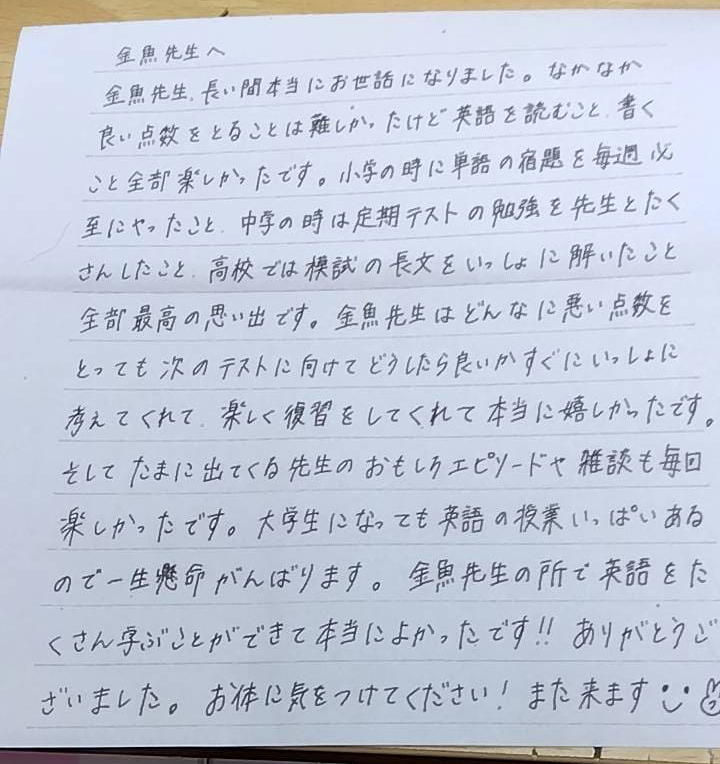 金魚先生へ
金魚先生、長い間本当にお世話になりました。なかなか
良い点数をとることは難しかったけど英語を読むこと、書く
こと全部楽しかったです。小学の時に単語の宿題を毎週必
至にやったこと、中学の時は定期テストの勉強を先生とたく
さんしたこと、高校では模試の長文をいっしょに解いたこと
全部最高の思い出です。金魚先生はどんなに悪い点数を
とっても次のテストに向けてどうしたら良いかすぐにいっしょに
考えてくれて、楽しく復習をしてくれて本当に嬉しかったです。
そしてたまに出てくる先生のおもしろエピソードや雑談も毎回
楽しかったです。大学生になっても英語の授業いっぱいある
ので一生懸命がんばります。金魚先生の所で英語をた
くさん学ぶことができて本当によかったです!! ありがとうご
ざいました。お体に気をつけてください! また来ます